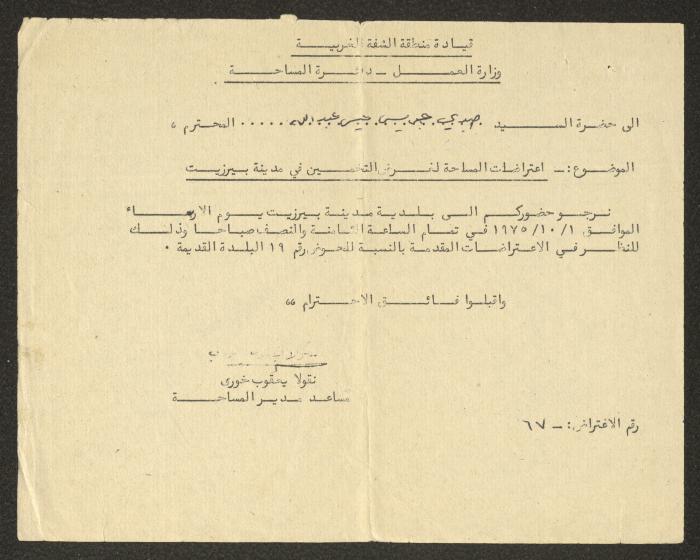 قيادة منطقة الضفة الغربية
وزارة العمل - دائرة المساحة
الى حضرة السيد صبحي جريس عبد الله ..... المحترم ،
الموضوع :- اعتراضات المساحة لغرض التخمين في مدينة بيرزيت
نرجو حضوركم الى بلدية مدينة بيرزيت يوم الاربعاء
الموافق ١٩٧٥/١٠/١ في تمام الساعة الثامنة والنصف صباحا وذلك
للنظر في الاعتراضات المقدمة بالنسبة للحوض رقم ١٩ البلدة القديمة .
واقبلوا فائق الاحترام ،،
نقولا يعقوب خورى
مساعد مدير المساحة
رقم الاعتراض :- ٦٧